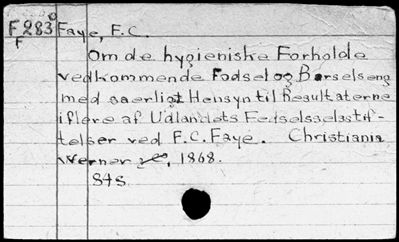 F283 Faye, F.C.
F
Om de hygieniske Forholde
vedkommende Fødsel og Barselseng
med særligt Hensyn til Resultaterne
i flere af Udlandets Fødselsselsstif-
telser ved F.C. Faye. Christiania
Werner 1868.
84s